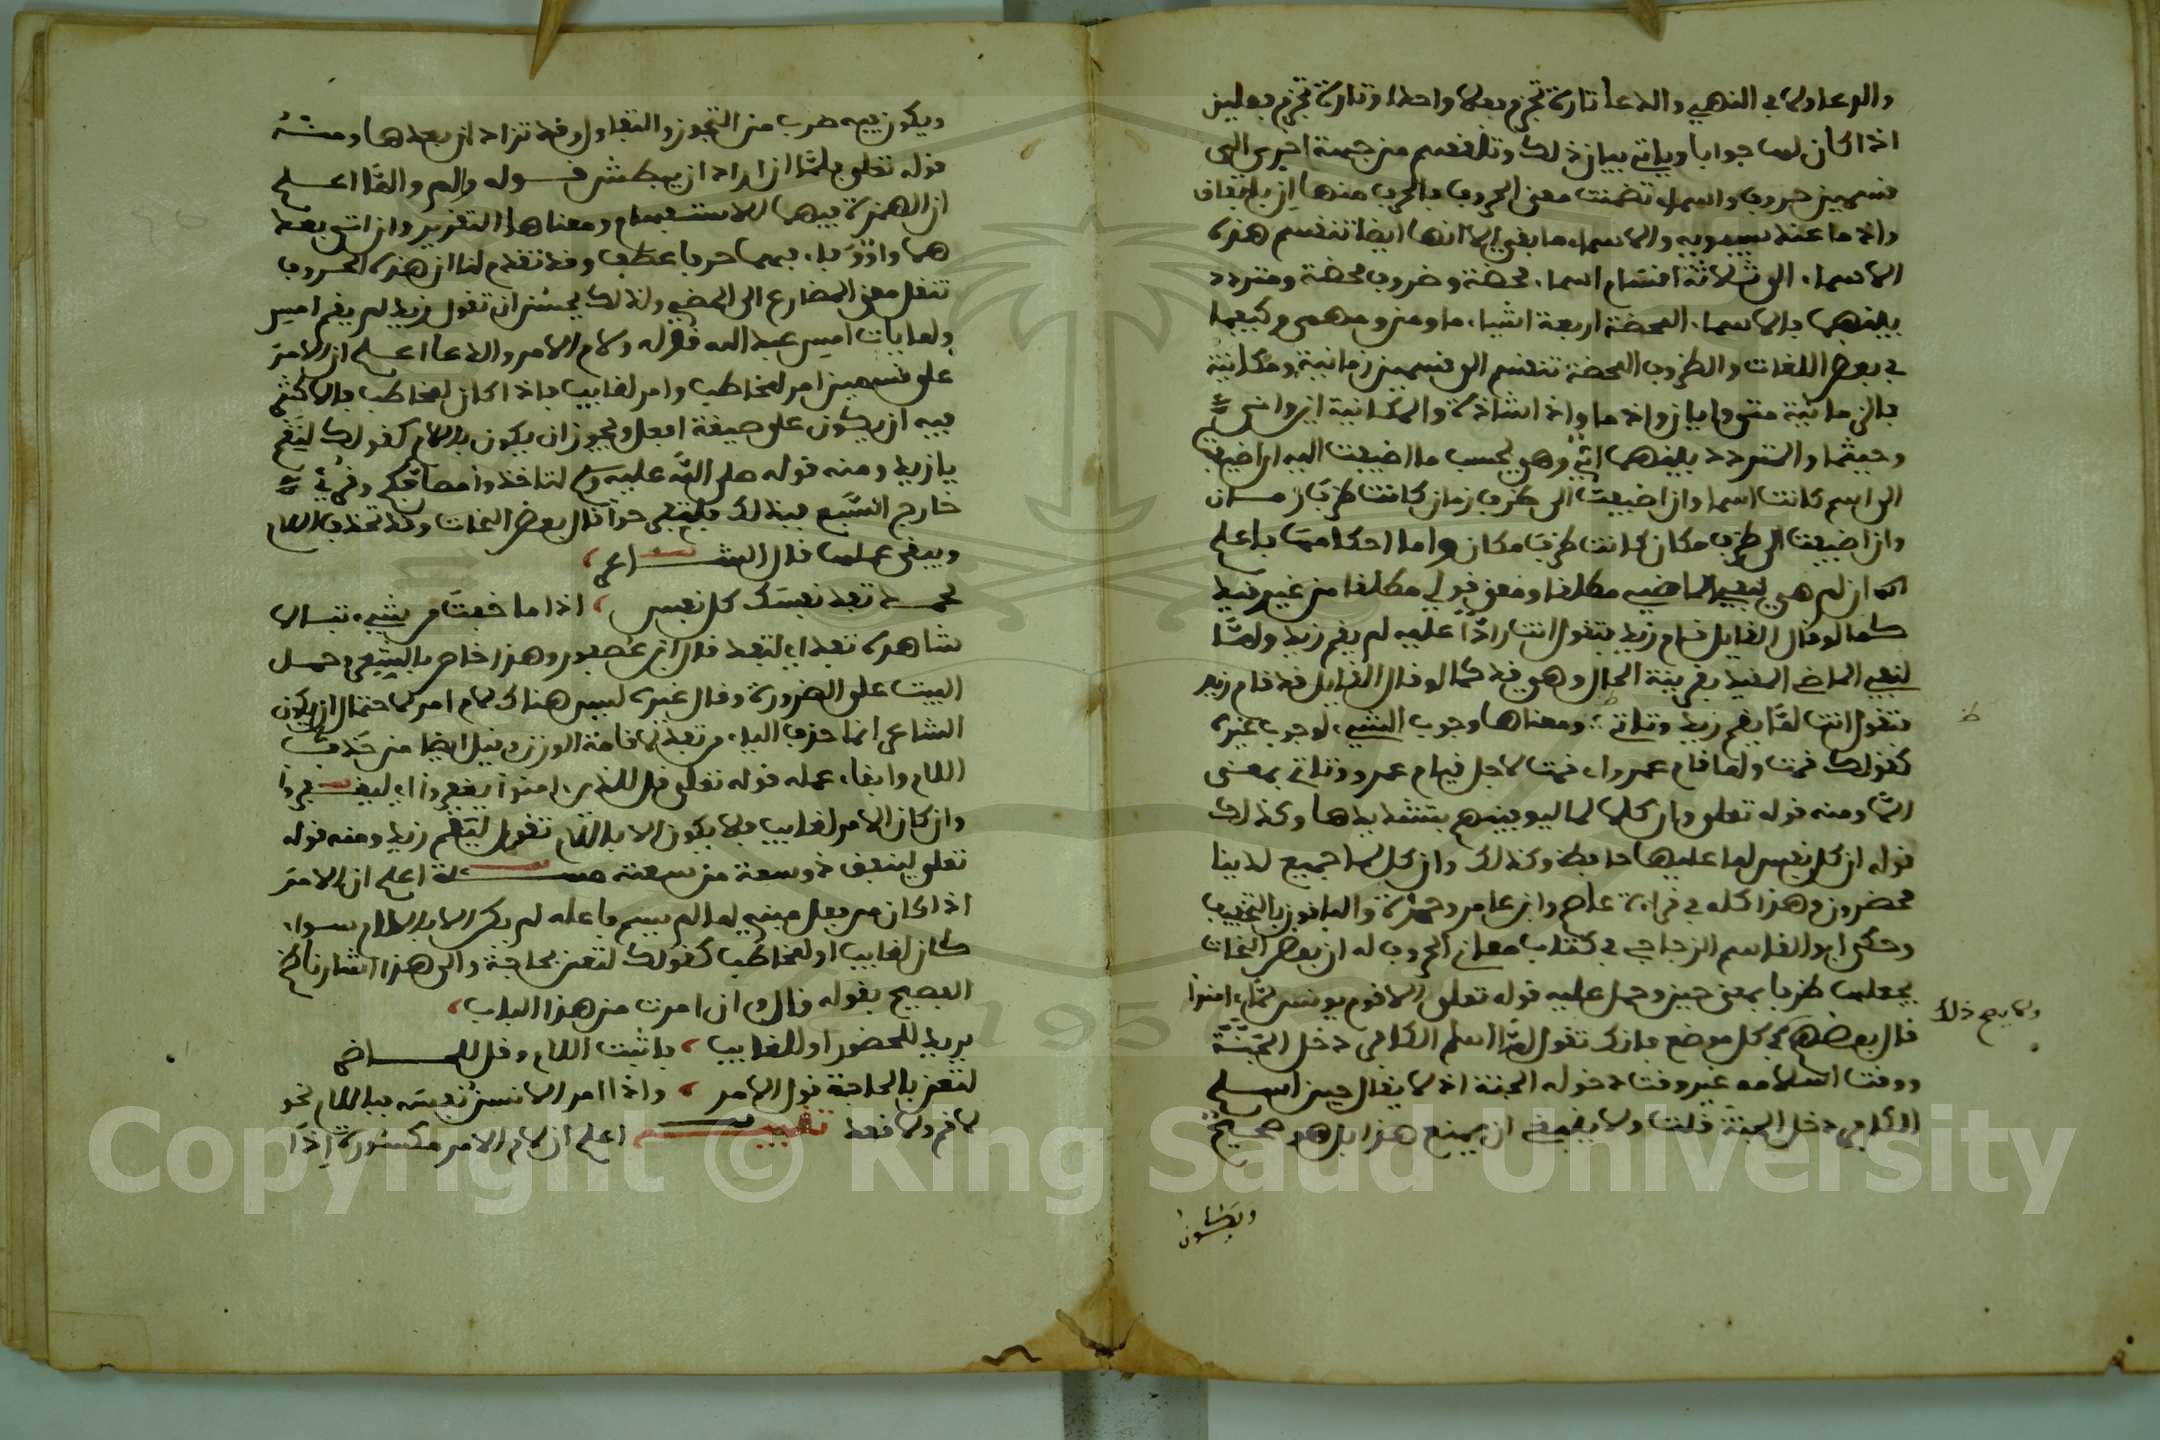 والدعا ولا في النهي والدعا تارة تجزم فعلا واحدا وتارة تجزم فعلين
اذا كان لها جوابا وياتي بيان ذلك وتنقسم من جهة اخرى الى
قسمين حروف واسما تضمنت معنى الحروف فالحرف منها ان باتفاق
واذ ما عند سيبويه والاسما ما بقي الا انها ايضا تنقسم هذه
الاسما الى ثلاثة اقسام اسما محضة وظروف محضة ومتردد
بينهما فالاسما المحضة اربعة اشيا ما ومن ومهمى وكيفما
في بعض اللغات والظروف المحضة تنقسم الى قسمين زمانية ومكانية
فالزمانية متى وايان واذ ما واذا الشاذة والمكانية اين وانى
وحيثما والمتردد بينهما اي وهي بحسب ما اضيفت اليه ان اضيفت
الى اسم كانت اسما وان اضيفت الى ظرف زمان كانت ظرف زمان
وان اضيفت الى ظرف مكان كانت ظرف مكان واما احكامها فاعلم
ان لم هي لنفي الماضي مطلقا ومعنى قولي مطلقا من غير قيد
كما لو قال القايل قام زيد فتقول انت رادا عليه لم يقم زيد ولما
لنفي الماضي المقيد بقرينة الحال وهي قد كما لو قال القايل قد قام زيد
فتقول انت لما يقم زيد وتاتي ومعناها وجوب الشيء لوجوب غيره
كقولك قمت ولما قام عمرو اي قمت لاجل قيام عمرو وتاتي بمعنى
الا ومنه قوله تعلى وان كلا لما ليوفينهم بتشديدها وكذلك
قوله ان كل نفس لما عليها حافظ وكذلك وان كل لما جميع لدينا
محضرون وهذا كله في قراءة عاصم وابن عامر وحمزة والباقون بالتخفيف
وحكى ابو القاسم الزجاجي في كتاب معاني الحروف له ان بعض النحات
يجعلها ظرفا بمعنى حين وحمل عليه قوله تعلى الا قوم يونس لما امنوا
ولا يصح ذلك
قال بعضهم في كل موضع فانك تقول لما اسلم الكافر دخل الجنة
ووقت اسلامه غير وقت دخوله الجنة اذ لا يقال حين اسلم
الكافر دخل الجنة قلت ولا ينبغي ان يمنع هذا بل هو صحيح
ويكون
ويكون فيه ضرب من التجوز والتفاول وقد تزاد ان بعدها ومنه
قوله تعلى فلما ان اراد ان يبطش قوله والم والما اعلم
ان الهمزة فيهما للاستفهام ومعناها التقرير وان اتى بعد
هما واو او فاء فهما حرفا عطف وقد تقدم لنا ان هذه الحروف
تنقل معنى المضارع الى المضي ولذلك يحسن ان تقول زيد لم يقم امس
ولما يات امس عبد الله قوله ولام الامر والدعا اعلم ان الامر
على قسمين امر لمخاطب وامر لغايب فاذا كان لمخاطب فالاكثر
فيه ان يكون على صيغة افعل ويجوز ان يكون باللام كقولك لتقم
يا زيد ومنه قوله صلى الله عليه وسلم لتاخذوا مصافكم وقرئ في
خارج السبع فبذلك فلتفرحوا قال بعض النحات وقد تحذف اللام
ويبقى عملها قال الشاعر
محمد تفد نفسك كل نفس ، اذا ما خفت من شيء تبالا
شاهده تفد اي لتفد قال ابن عصفور وهذا خاص بالشعر وحمل
البيت على الضرورة وقال غيره ليس هناك لام امر لاحتمال ان يكون
الشاعر انما حذف الياء من تفد لاقامة الوزن وقيل ايضا من حذف
اللام وابقاء عمله قوله تعلى قل للذين امنوا يغفروا اي ليغفروا
وان كان الامر لغايب فلا يكون الا باللام تقول ليقم زيد ومنه قوله
تعلى لينفق ذو سعة من سعته مسئلة اعلم ان الامر
اذا كان من فعل مبني لما لم يسم فاعله لم يكن الا باللام سواء
كان لغايب او لمخاطب كقولك لتعن بحاجة والى هذا اشار ناظم
الفصيح بقوله قال وان امرت من هذا الباب ،
يريد للحضور او للغايب ، فاثبت اللام وقل للماضي
لتعن بالحاجة نول الامر ، واذا امر الانسن نفسه فباللام نحو
لاقم ولاقعد تنبيه اعلم ان لام الامر مكسورة اذا
Copyright © King Saud University
195